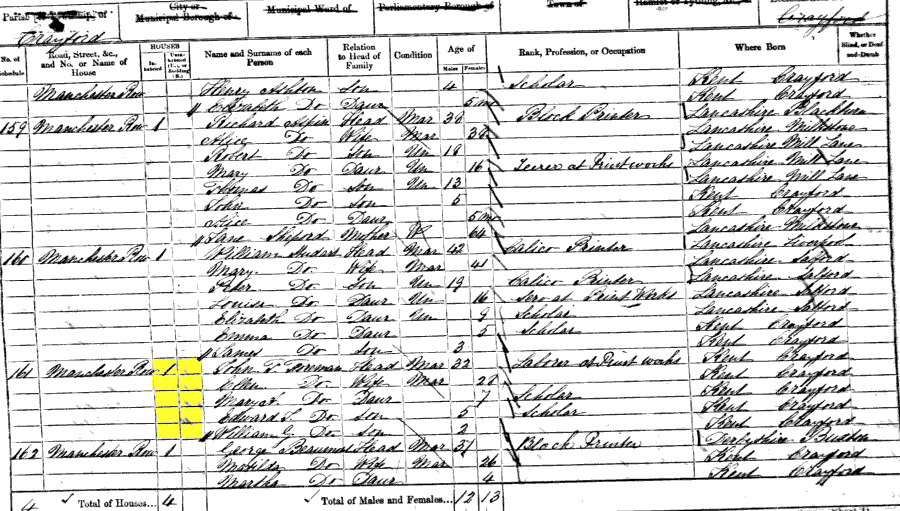 Parish [or Township] of
Crayford
City or Municipal Borough of
Municipal Ward of
Parliamentary Borough of
Town of
Crayford
No. of Schedule Road, Street, &c., and No. or Name of House HOUSES Inhabited Uninhabited (U.), or Building (B.) Name and Surname of each Person Relation to Head of Family Condition Age of Males Females Rank, Profession, or Occupation Where Born Whether Blind, or Deaf-and-Dumb
Manchester Row Henry Ashton Son 4 Scholar Kent Crayford
Elizabeth Do Daur 5 mo Kent Crayford
159 Manchester Row 1 Richard Aspin Head Mar 38 Block Printer Lancashire Blackburn
Alice Do Wife Mar 38 Lancashire
Robert Do Son Un 18 Lancashire Mill Lane
Mary Do Daur Un 16 at Print works Lancashire Mill Lane
Thomas Do Son Un 13 Lancashire Mill Lane
John Do Son 5 Kent Crayford
Alice Do Daur 5 mo Kent Crayford
Jane Mother W 64 Lancashire
160 Manchester Row 1 William Head Mar 42 Calico Printer Lancashire Liverpool
Mary Do Wife Mar 41 Lancashire Salford
Peter Do Son Un 19 Calico Printer Lancashire Salford
Louisa Do Daur Un 16 at Print Works Lancashire Salford
Elizabeth Do Daur Un 9 Scholar Lancashire Salford
Emma Do Daur 5 Scholar Kent Crayford
James Do Son 3 Kent Crayford
161 Manchester Row 1 John T. Foreman Head Mar 32 Laborer at Print works Kent Crayford
Ellen Do Wife Mar 28 Kent Crayford
Do Daur 7 Scholar Kent Crayford
Edward Do Son 5 Scholar Kent Crayford
William G Do Son 2 Kent Crayford
162 Manchester Row 1 George Beaumont Head Mar 31 Block Printer Derbyshire Buxton
Matilda Do Wife Mar 26 Kent Crayford
Martha Do Daur 4 Kent Crayford
4 Total of Houses... 4 Total of Males and Females... 12 13